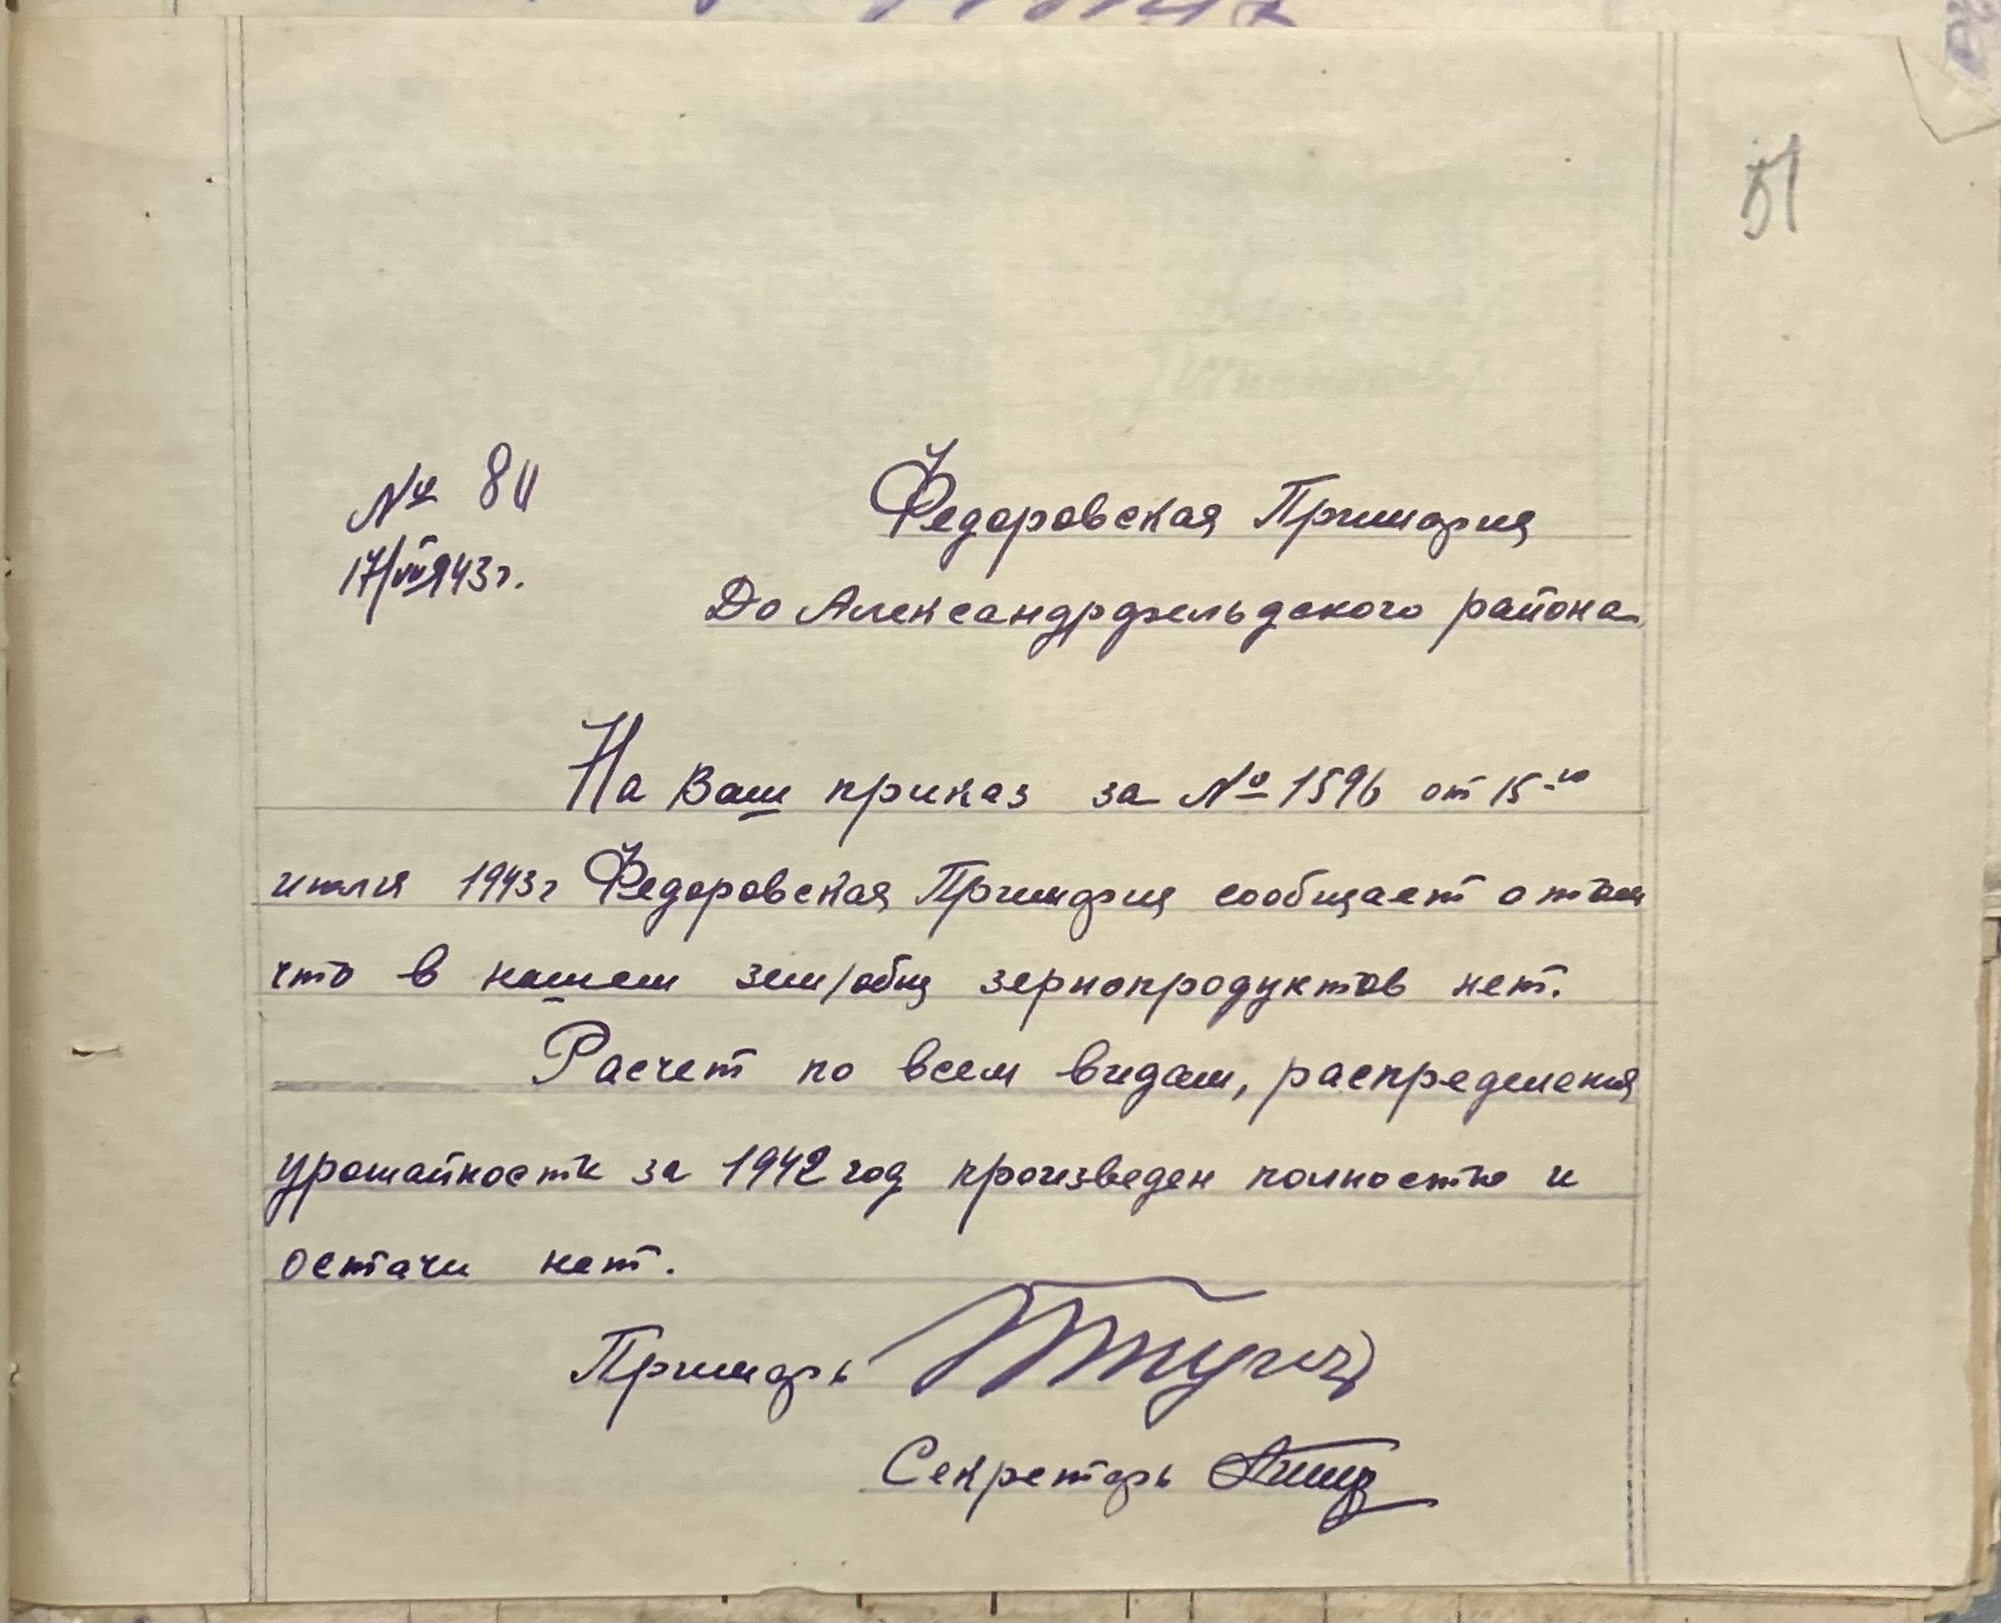 51
№ 811
17/VII 1943 г.
Федоровская Примария
До Александрфельдского района
На Ваш приказ за № 1596 от 15-го
июля 1943 г Федоровская Примария сообщает о том
что в нашем зем/общ зернопродуктов нет.
Расчет по всем видам, распределения
урожайности за 1942 год произведен полностью и
остачи нет.
Примарь
Секретарь